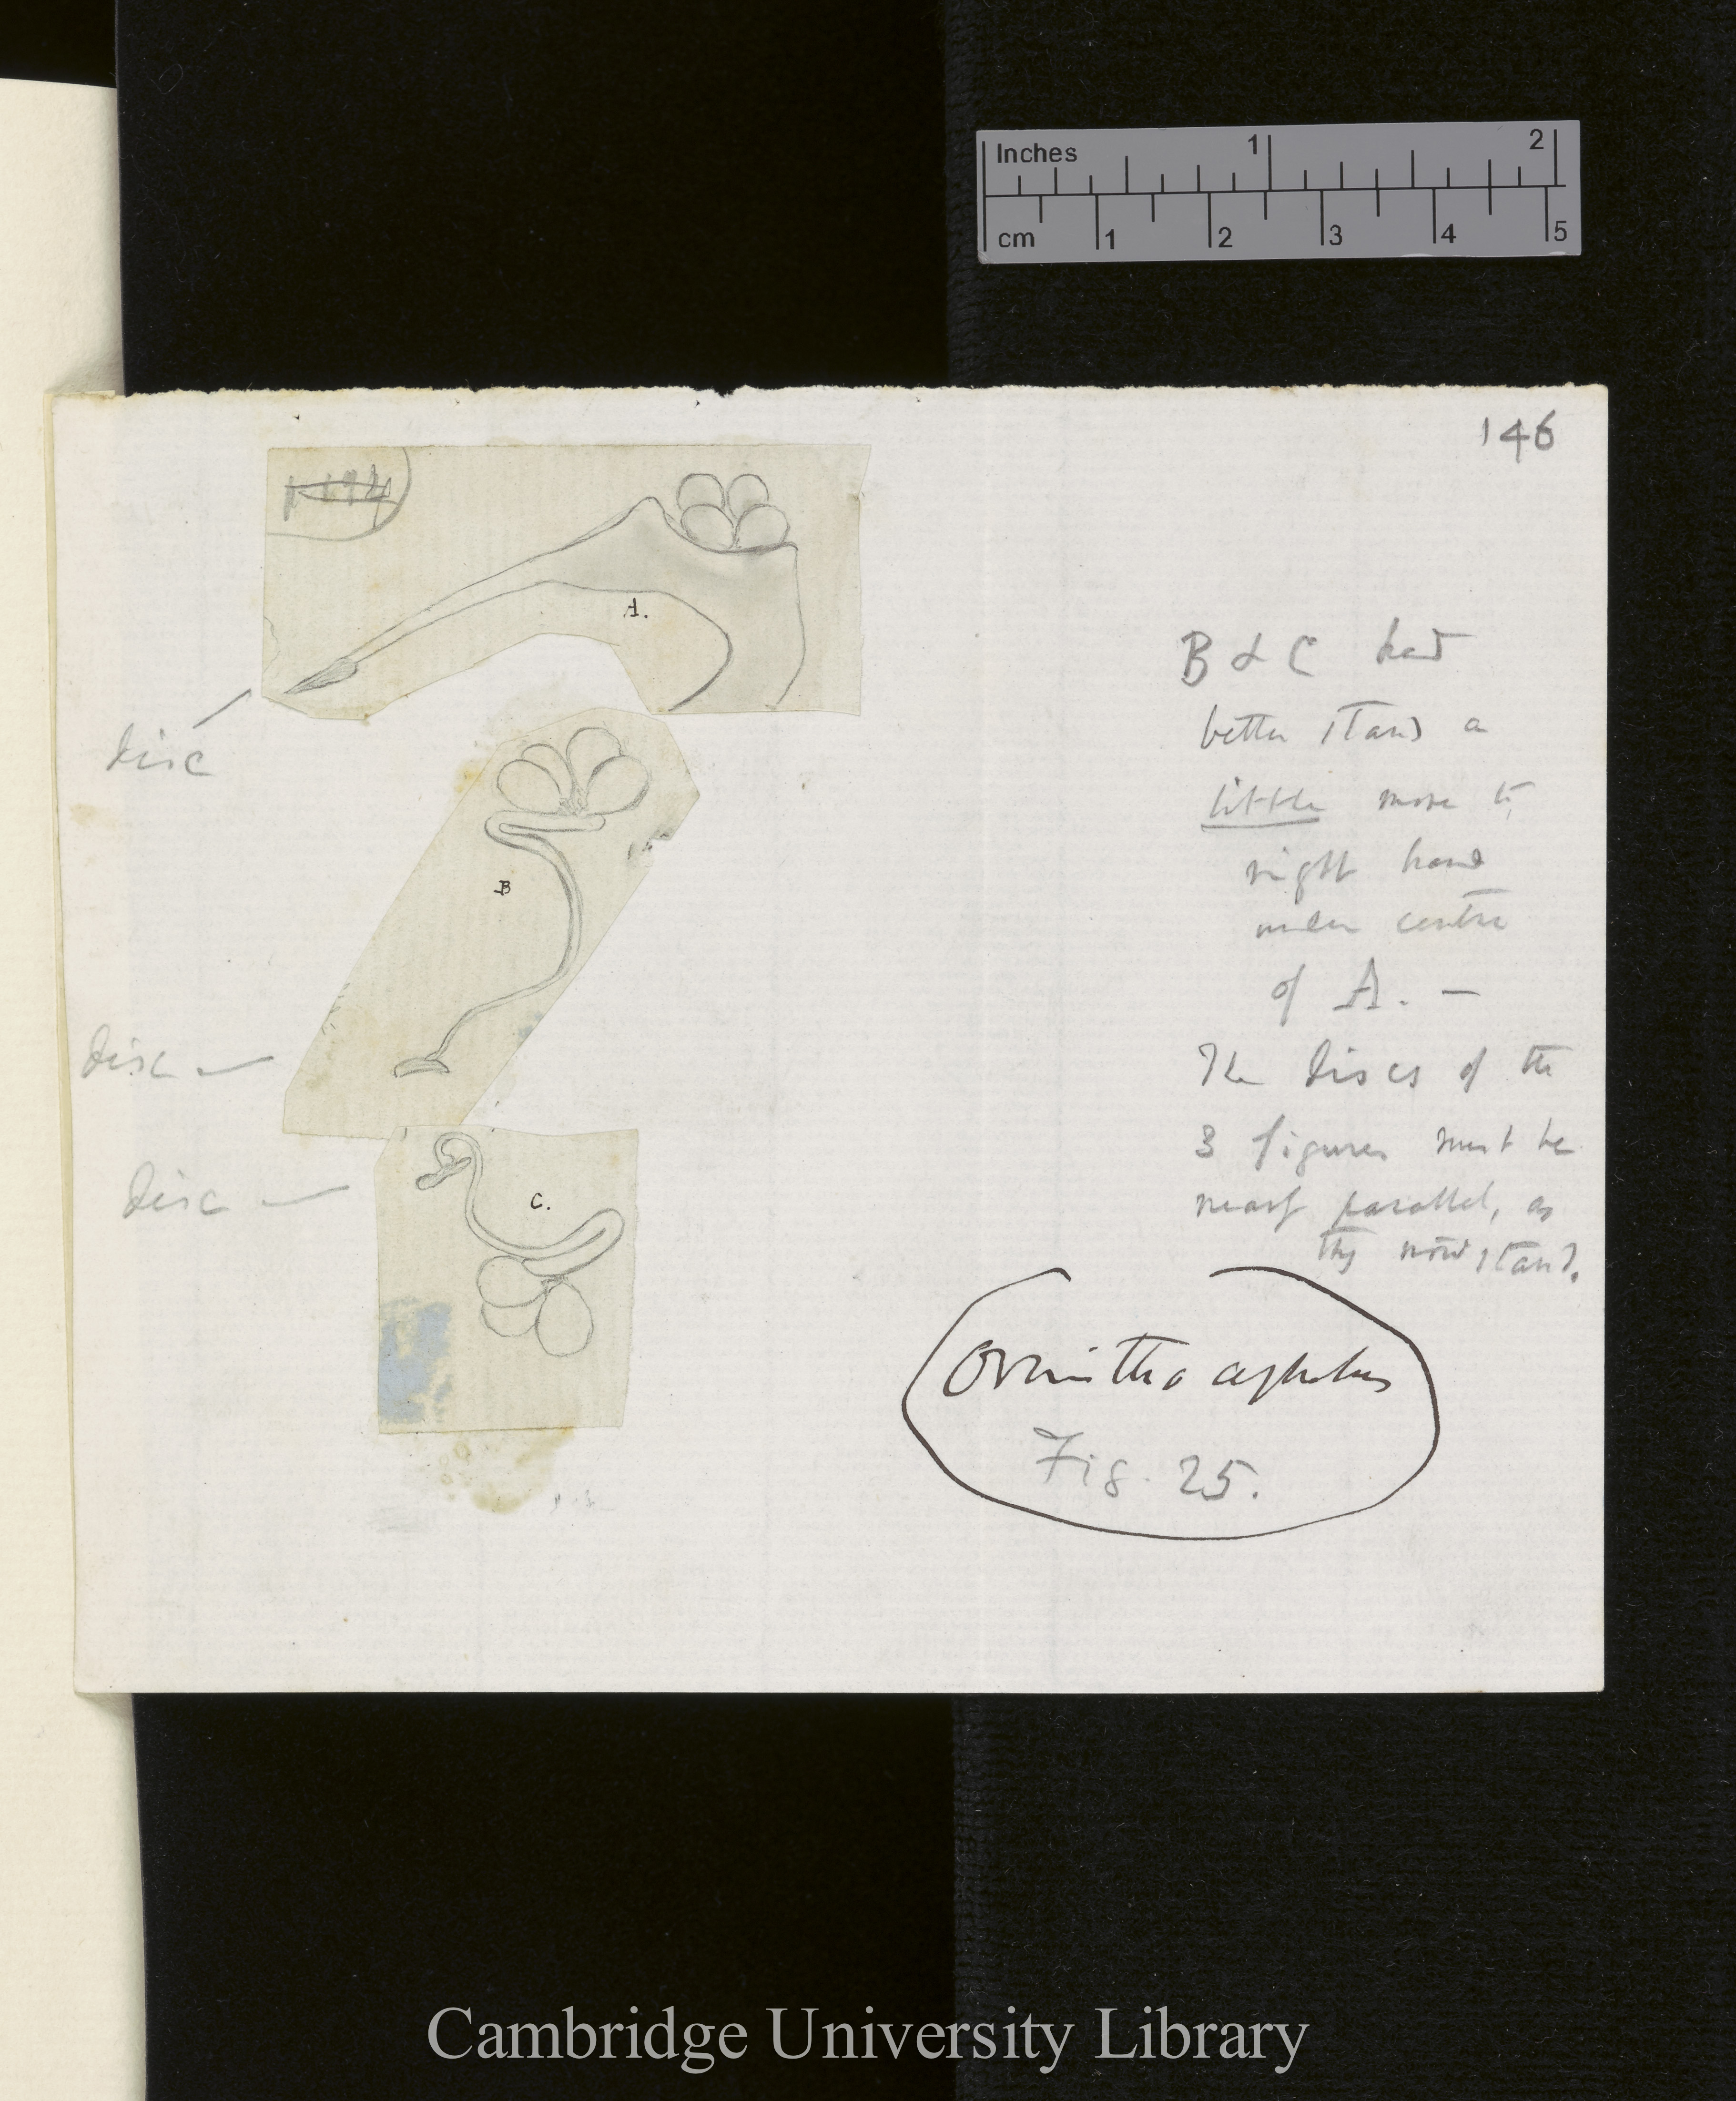 Inches 1 2
cm 1 2 3 4 5
146
A.
disc
B
disc
C.
disc
B & C had
better stand a
little more to
right hand
under centre
of A. —
The discs of the
3 figures must be
nearly parallel, as
they now stand.
Ornithocephalus
Fig. 25.
Cambridge University Library